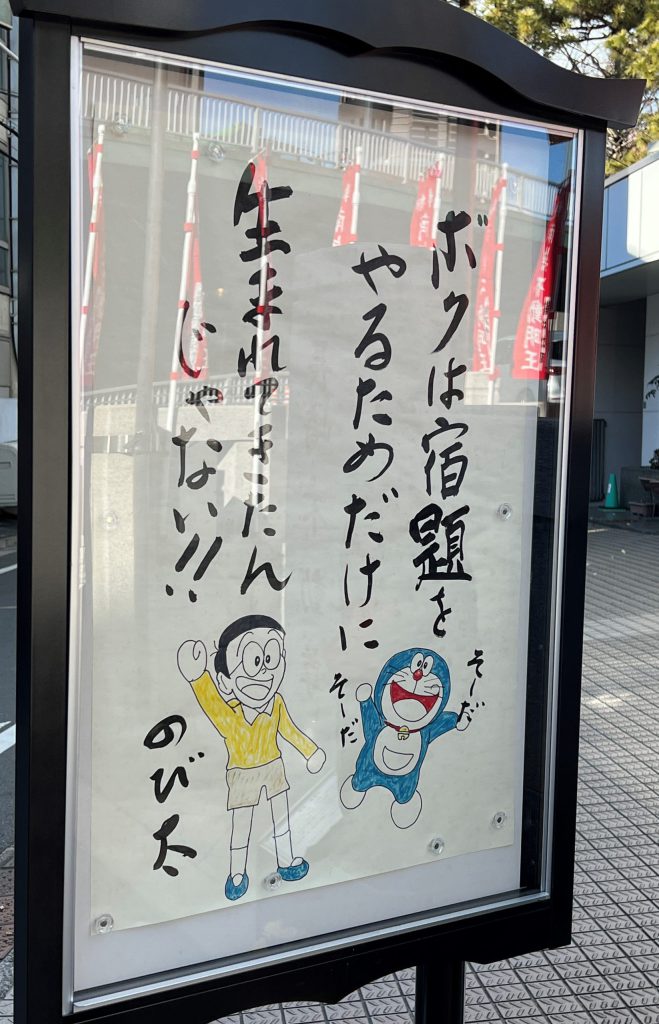 ボクは宿題を
やるためだけに
生まれてきたん
じゃない!!
のび太
そーだ
そーだ
動明王